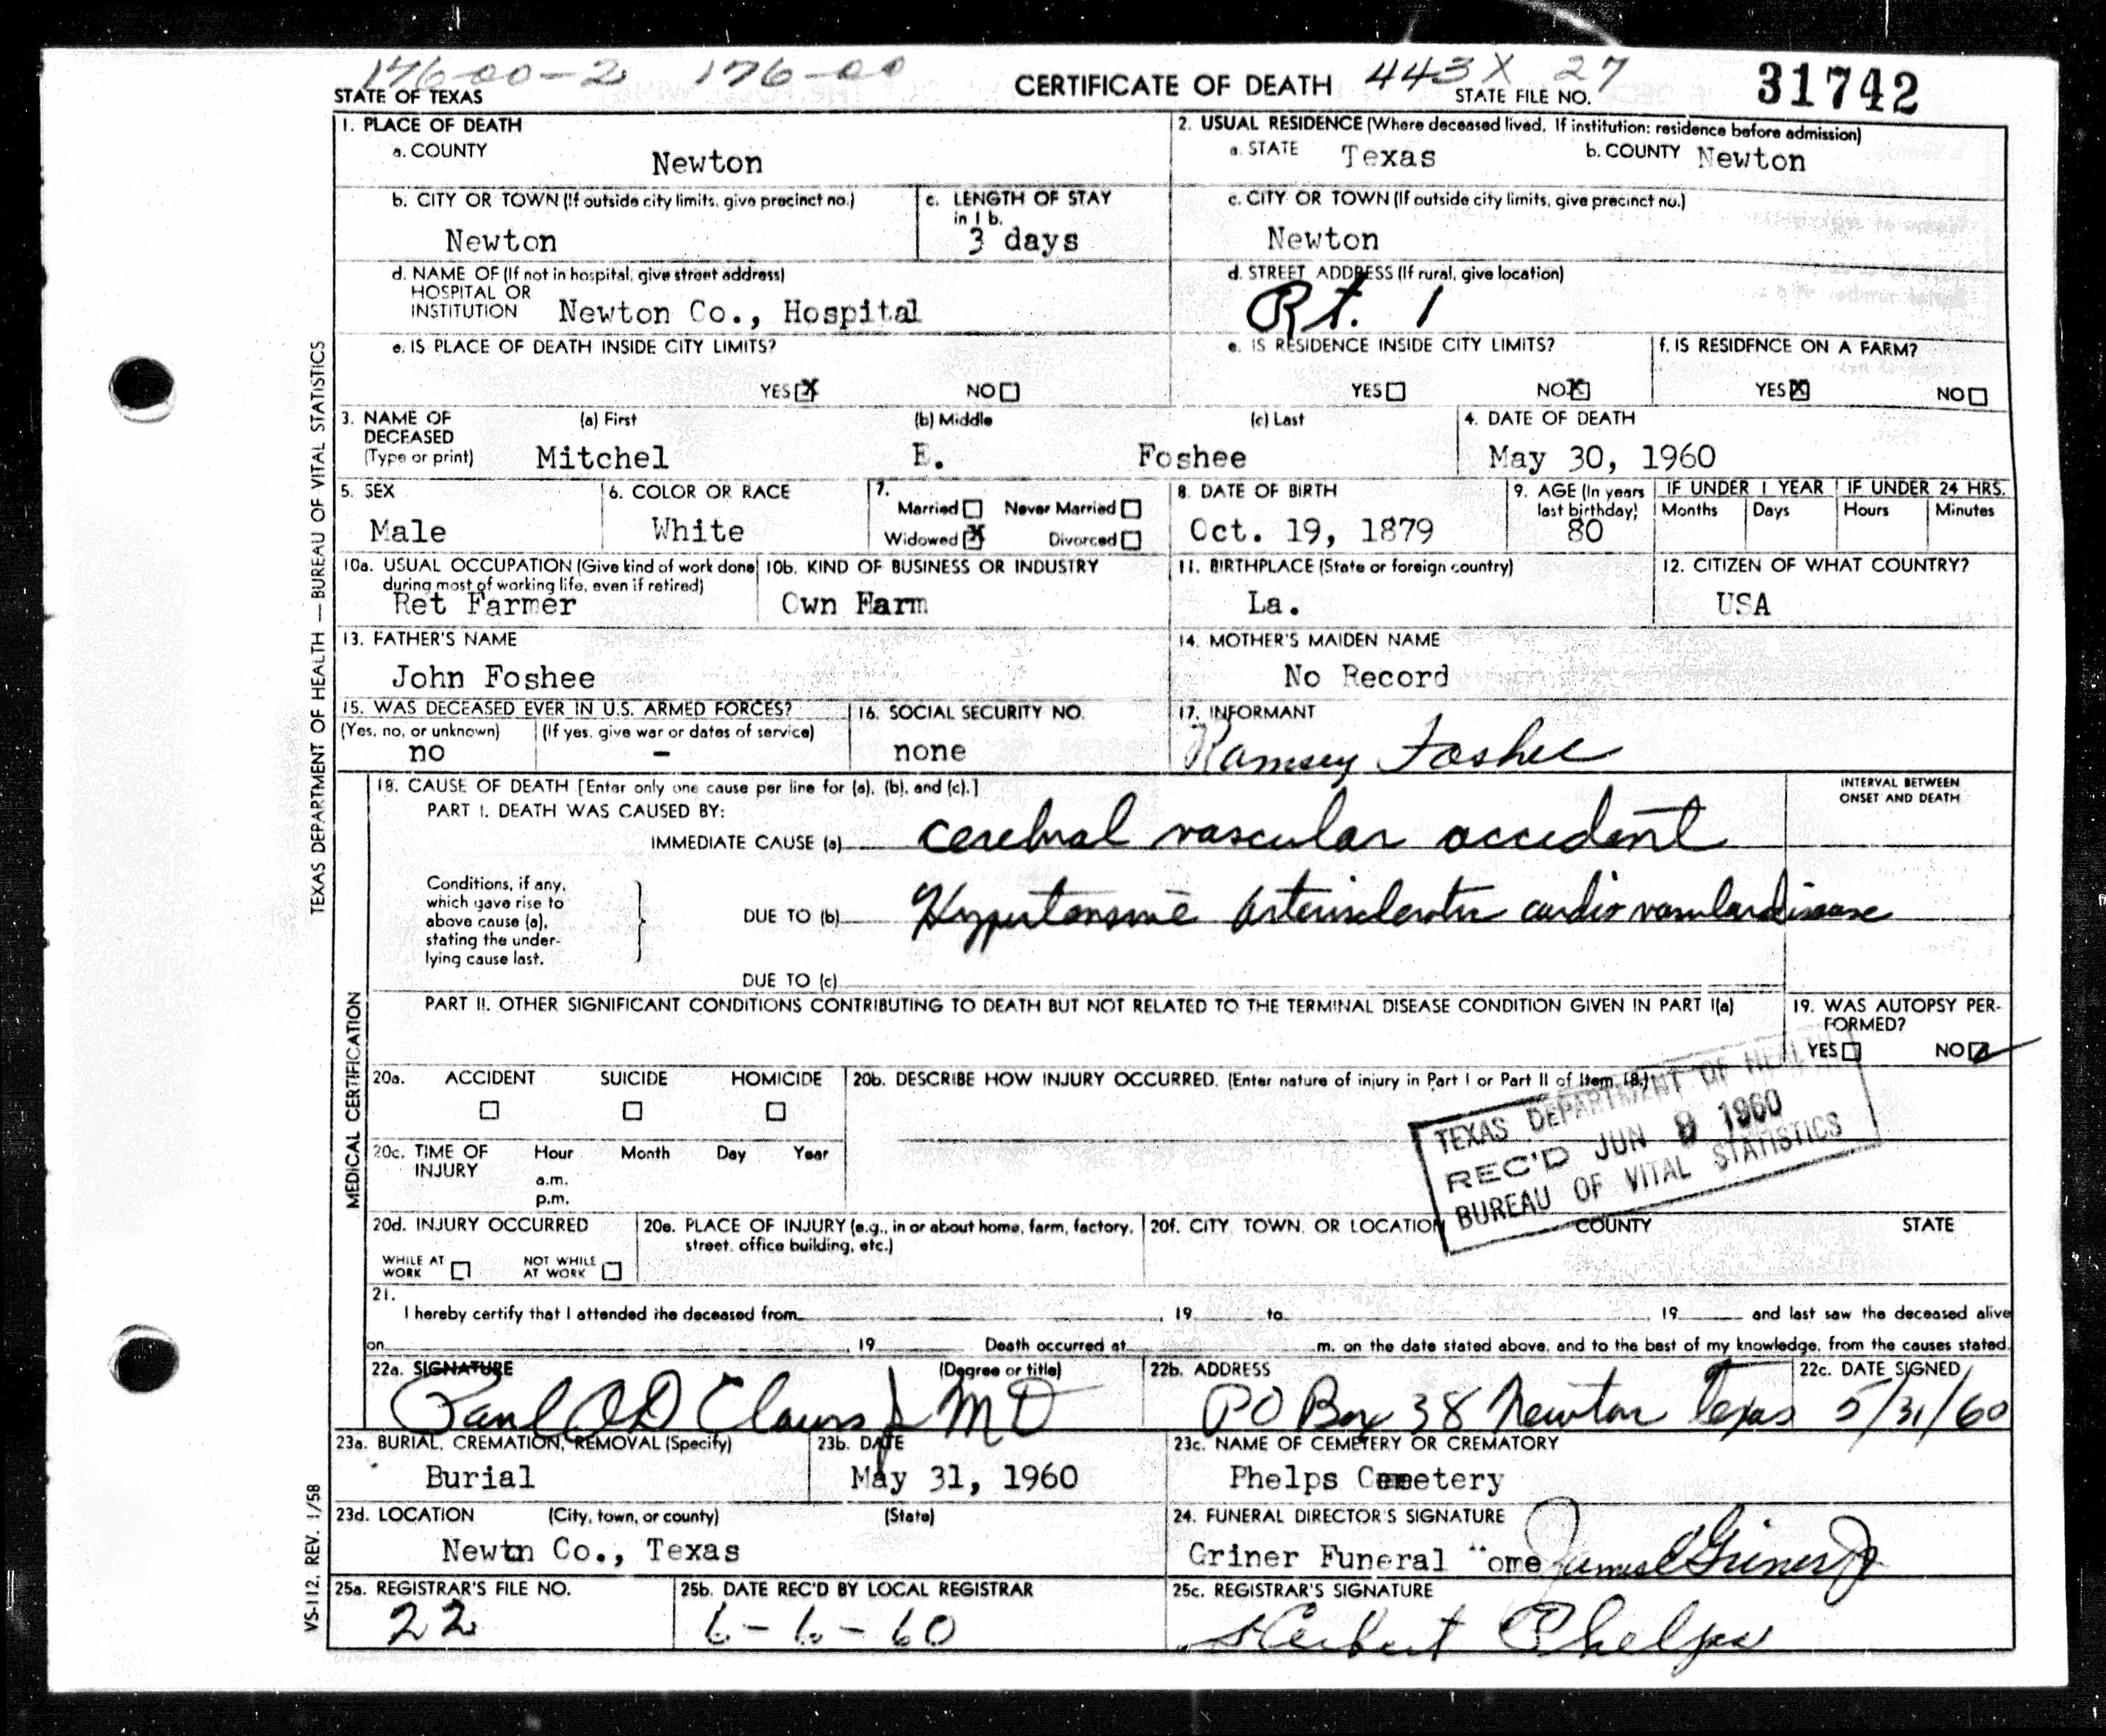 176-00-2 176-00 443X 27
STATE OF TEXAS CERTIFICATE OF DEATH STATE FILE NO. 31742
TEXAS DEPARTMENT OF HEALTH — BUREAU OF VITAL STATISTICS
1. PLACE OF DEATH
a. COUNTY Newton
2. USUAL RESIDENCE (Where deceased lived. If institution: residence before admission)
a. STATE Texas b. COUNTY Newton
b. CITY OR TOWN (If outside city limits, give precinct no.)
Newton
c. LENGTH OF STAY
in 1 b.
3 days
c. CITY OR TOWN (If outside city limits, give precinct no.)
Newton
d. NAME OF (If not in hospital, give street address)
HOSPITAL OR
INSTITUTION Newton Co., Hospital
d. STREET ADDRESS (If rural, give location)
Rt. 1
e. IS PLACE OF DEATH INSIDE CITY LIMITS?
YES X NO
e. IS RESIDENCE INSIDE CITY LIMITS?
YES NO X
f. IS RESIDENCE ON A FARM?
YES X NO
3. NAME OF (a) First (b) Middle (c) Last
DECEASED
(Type or print) Mitchel E. Foshee
4. DATE OF DEATH
May 30, 1960
5. SEX
Male
6. COLOR OR RACE
White
7.
Married Never Married
Widowed X Divorced
8. DATE OF BIRTH
Oct. 19, 1879
9. AGE (In years
last birthday)
80
IF UNDER 1 YEAR IF UNDER 24 HRS.
Months Days Hours Minutes
10a. USUAL OCCUPATION (Give kind of work done
during most of working life, even if retired)
Ret Farmer
10b. KIND OF BUSINESS OR INDUSTRY
Own Farm
11. BIRTHPLACE (State or foreign country)
La.
12. CITIZEN OF WHAT COUNTRY?
USA
13. FATHER'S NAME
John Foshee
14. MOTHER'S MAIDEN NAME
No Record
15. WAS DECEASED EVER IN U.S. ARMED FORCES?
(Yes, no, or unknown) (If yes, give war or dates of service)
no –
16. SOCIAL SECURITY NO.
none
17. INFORMANT
Ramsey Foshee
MEDICAL CERTIFICATION
18. CAUSE OF DEATH [Enter only one cause per line for (a), (b), and (c).]
INTERVAL BETWEEN
ONSET AND DEATH
PART I. DEATH WAS CAUSED BY:
IMMEDIATE CAUSE (a) cerebral vascular accident
Conditions, if any,
which gave rise to
above cause (a),
stating the under-
lying cause last.
DUE TO (b) Hypertensive Arteriosclerotic cardiovascular disease
DUE TO (c)
PART II. OTHER SIGNIFICANT CONDITIONS CONTRIBUTING TO DEATH BUT NOT RELATED TO THE TERMINAL DISEASE CONDITION GIVEN IN PART I(a)
19. WAS AUTOPSY PER-
FORMED?
YES NO
20a. ACCIDENT SUICIDE HOMICIDE
20b. DESCRIBE HOW INJURY OCCURRED. (Enter nature of injury in Part I or Part II of Item 18.)
TEXAS DEPARTMENT OF HEALTH
REC'D JUN 9 1960
BUREAU OF VITAL STATISTICS
20c. TIME OF Hour Month Day Year
INJURY
a.m.
p.m.
20d. INJURY OCCURRED
WHILE AT
WORK
NOT WHILE
AT WORK
20e. PLACE OF INJURY (e.g., in or about home, farm, factory,
street, office building, etc.)
20f. CITY, TOWN, OR LOCATION COUNTY STATE
21.
I hereby certify that I attended the deceased from , 19 to , 19 and last saw the deceased alive
on , 19 Death occurred at m. on the date stated above, and to the best of my knowledge, from the causes stated.
22a. SIGNATURE (Degree or title)
Paul MD
22b. ADDRESS
PO Box 38 Newton Texas
22c. DATE SIGNED
5/31/60
23a. BURIAL, CREMATION, REMOVAL (Specify)
Burial
23b. DATE
May 31, 1960
23c. NAME OF CEMETERY OR CREMATORY
Phelps Cemetery
23d. LOCATION (City, town, or county) (State)
Newton Co., Texas
24. FUNERAL DIRECTOR'S SIGNATURE
Griner Funeral "ome James E Griner Jr
25a. REGISTRAR'S FILE NO.
22
25b. DATE REC'D BY LOCAL REGISTRAR
6-6-60
25c. REGISTRAR'S SIGNATURE
Herbert Phelps
VS-112, REV. 1/58